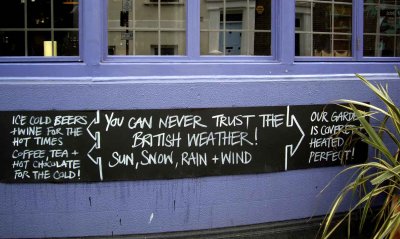 ICE COLD BEERS
+ WINE FOR THE
HOT TIMES
COFFEE, TEA +
HOT CHOCOLATE
FOR THE COLD!
YOU CAN NEVER TRUST THE
BRITISH WEATHER!
SUN, SNOW, RAIN + WIND
OUR GARDEN
IS COVERED
HEATED
PERFECT!